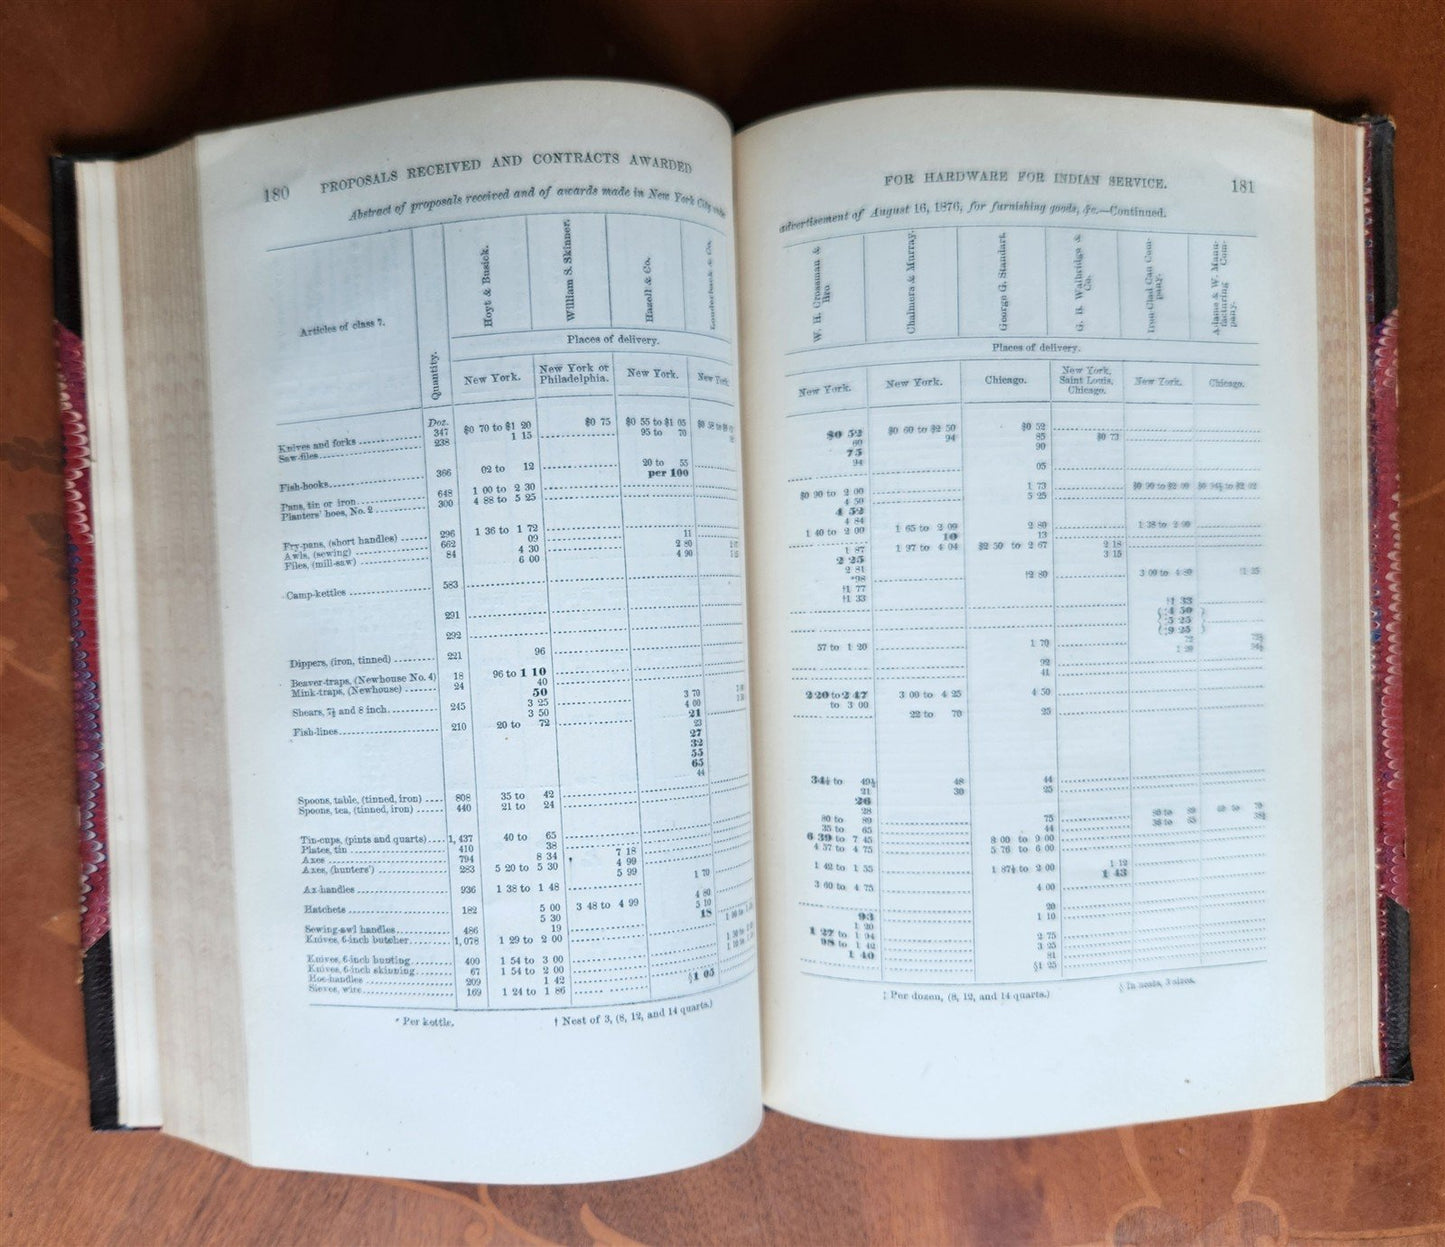 180 PROPOSALS RECEIVED AND CONTRACTS AWARDED
Abstract of proposals received and of awards made in New York City
Articles of class 7.
Quantity.
Hoyt & Busick.
William S. Skinner.
Hazell & Co.
Places of delivery.
New York. New York or Philadelphia. New York. New York.
Doz.
Knives and forks 347 $0 70 to $1 20 $0 75 $0 55 to $1 05
Saw-files 238 1 15 95 to 70
Fish-hooks 366 02 to 12 20 to 55
per 100
Pans, tin or iron 648 1 00 to 2 30
Planters' hoes, No. 2 300 4 88 to 5 25
Fry-pans, (short handles) 296 1 36 to 1 72
Awls, (sewing) 662 09 11
Files, (mill-saw) 84 4 30 2 80
6 00 4 90
Camp-kettles 583
291
292
Dippers, (iron, tinned) 221 96
Beaver-traps, (Newhouse No. 4) 18 96 to 1 10
Mink-traps, (Newhouse) 24 40
50
Shears, 7½ and 8 inch 245 3 25 3 70
3 50 4 00
Fish-lines 210 20 to 72 21
23
27
32
55
65
44
Spoons, table, (tinned, iron) 808 35 to 42
Spoons, tea, (tinned, iron) 440 21 to 24
Tin-cups, (pints and quarts) 1,437 40 to 65
Plates, tin 410 38
Axes 794 8 34 7 18
Axes, (hunters') 283 5 20 to 5 30 4 99
5 99 1 70
Ax-handles 936 1 38 to 1 48
Hatchets 182 5 00 3 48 to 4 99 4 80
5 30 5 10
Sewing-awl handles 486 19 18
Knives, 6-inch butcher 1,078 1 29 to 2 00
Knives, 6-inch hunting 400 1 54 to 3 00
Knives, 6-inch skinning 67 1 54 to 2 00
Hoe-handles 209 1 42
Sieves, wire 169 1 24 to 1 86 §1 05
* Per kettle. † Nest of 3, (8, 12, and 14 quarts.)
FOR HARDWARE FOR INDIAN SERVICE. 181
advertisement of August 16, 1876, for furnishing goods, &c.—Continued.
W. H. Crossman & Bro.
Chalmers & Murray.
George G. Standart.
G. B. Walbridge & Co.
Iron-Clad Can Company.
Adams & W. Manufacturing Company.
Places of delivery.
New York. New York. Chicago. New York, Saint Louis, Chicago. New York. Chicago.
$0 52 $0 60 to $2 50 $0 52
60 94 85 $0 73
75 90
94 05
$0 90 to 2 00 1 73
4 50 5 25
4 52
4 84
1 40 to 2 00 1 65 to 2 09 2 80 1 38 to 2 00
10 13
1 87 1 97 to 4 04 $2 50 to 2 67 2 18
2 25 3 15
2 81
*98 †2 80 3 00 to 4 80
†1 77
†1 33
57 to 1 20 1 70
92
41
2 20 to 2 47 3 00 to 4 25 4 50
to 3 00
22 to 70 25
34½ to 49½ 48 44
21 30 25
26
28
80 to 89 75
35 to 65 44
6 39 to 7 45 8 00 to 9 00
4 37 to 4 75 5 76 to 6 00
1 42 to 1 55 1 87½ to 2 00 1 12
1 43
3 60 to 4 75 4 00
20
93 1 10
1 20
1 27 to 1 94 2 75
98 to 1 42 3 25
1 40 81
§1 25
‡ Per dozen, (8, 12, and 14 quarts.) § In nests, 3 sizes.